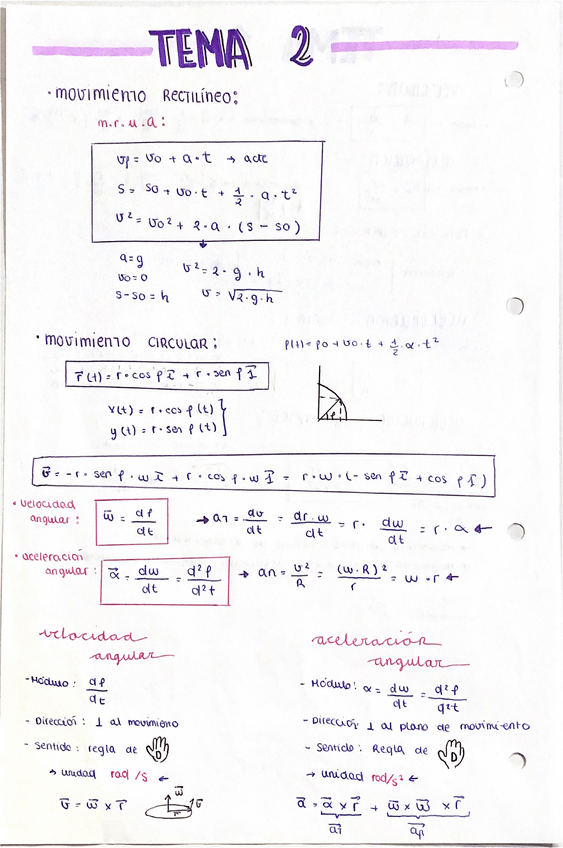 TEMA 2
• MOVIMIENTO RECTILÍNEO:
m.r.u.a:
vf = v0 + a·t → acte
s = s0 + v0·t + 1/2 · a · t²
v² = v0² + 2·a·(s - s0)
a=g
v0=0
s-s0 = h
v² = 2·g·h
v = √2·g·h
• MOVIMIENTO CIRCULAR:
φ(t) = φ0 + v0·t + 1/2 · α · t²
r⃗(t) = r·cos φ i⃗ + r·sen φ j⃗
x(t) = r·cos φ(t)
y(t) = r·sen φ(t)
v⃗ = -r·sen φ·w i⃗ + r·cos φ·w j⃗ = r·w·(-sen φ i⃗ + cos φ j⃗)
• velocidad angular:
w⃗ = dφ/dt
→ aT = dv/dt = dr·w/dt = r· dw/dt = r·α ←
• aceleración angular:
α⃗ = dw/dt = d²φ/d²t
→ an = v²/R = (w·R)²/r = w·r ←
velocidad angular
- Módulo: dφ/dt
- Dirección: ⊥ al movimiento
- Sentido: regla de D
→ unidad rad/s ←
v⃗ = w⃗ × r⃗
w⃗ v⃗ r
aceleración angular
- Módulo: α = dw/dt = d²φ/d²t
- Dirección: ⊥ al plano de movimiento
- Sentido: Regla de D
→ unidad rad/s² ←
a⃗ = α⃗ × r⃗ + w⃗ × w⃗ × r⃗